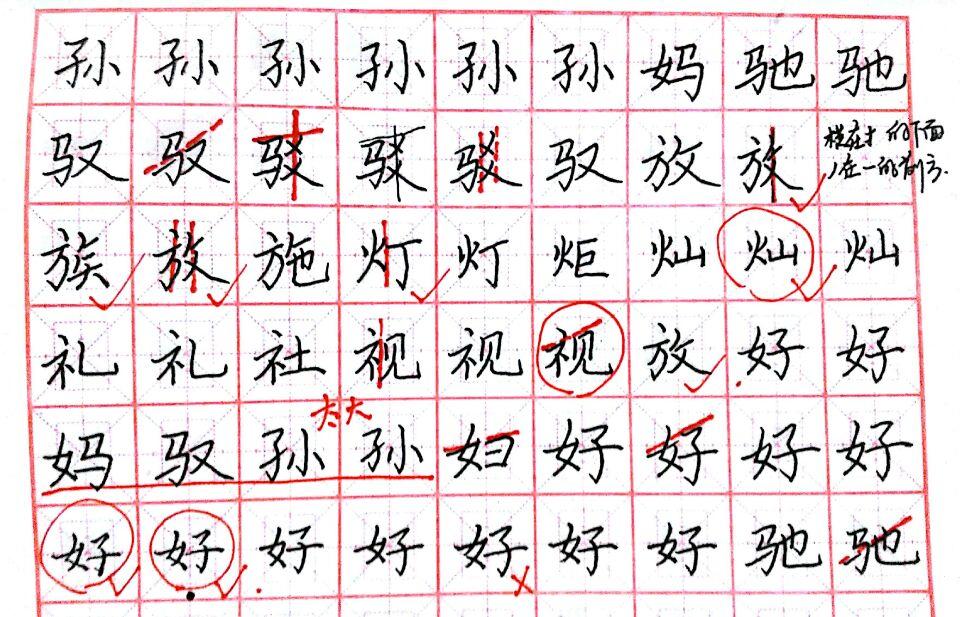 孙孙孙孙孙孙妈驰驰
驭驭驭驭驭驭放放
族放施灯灯炬灿灿灿
礼礼社视视视放好好
太大
妈驭孙孙妇好好好好
好好好好好好好驰驰